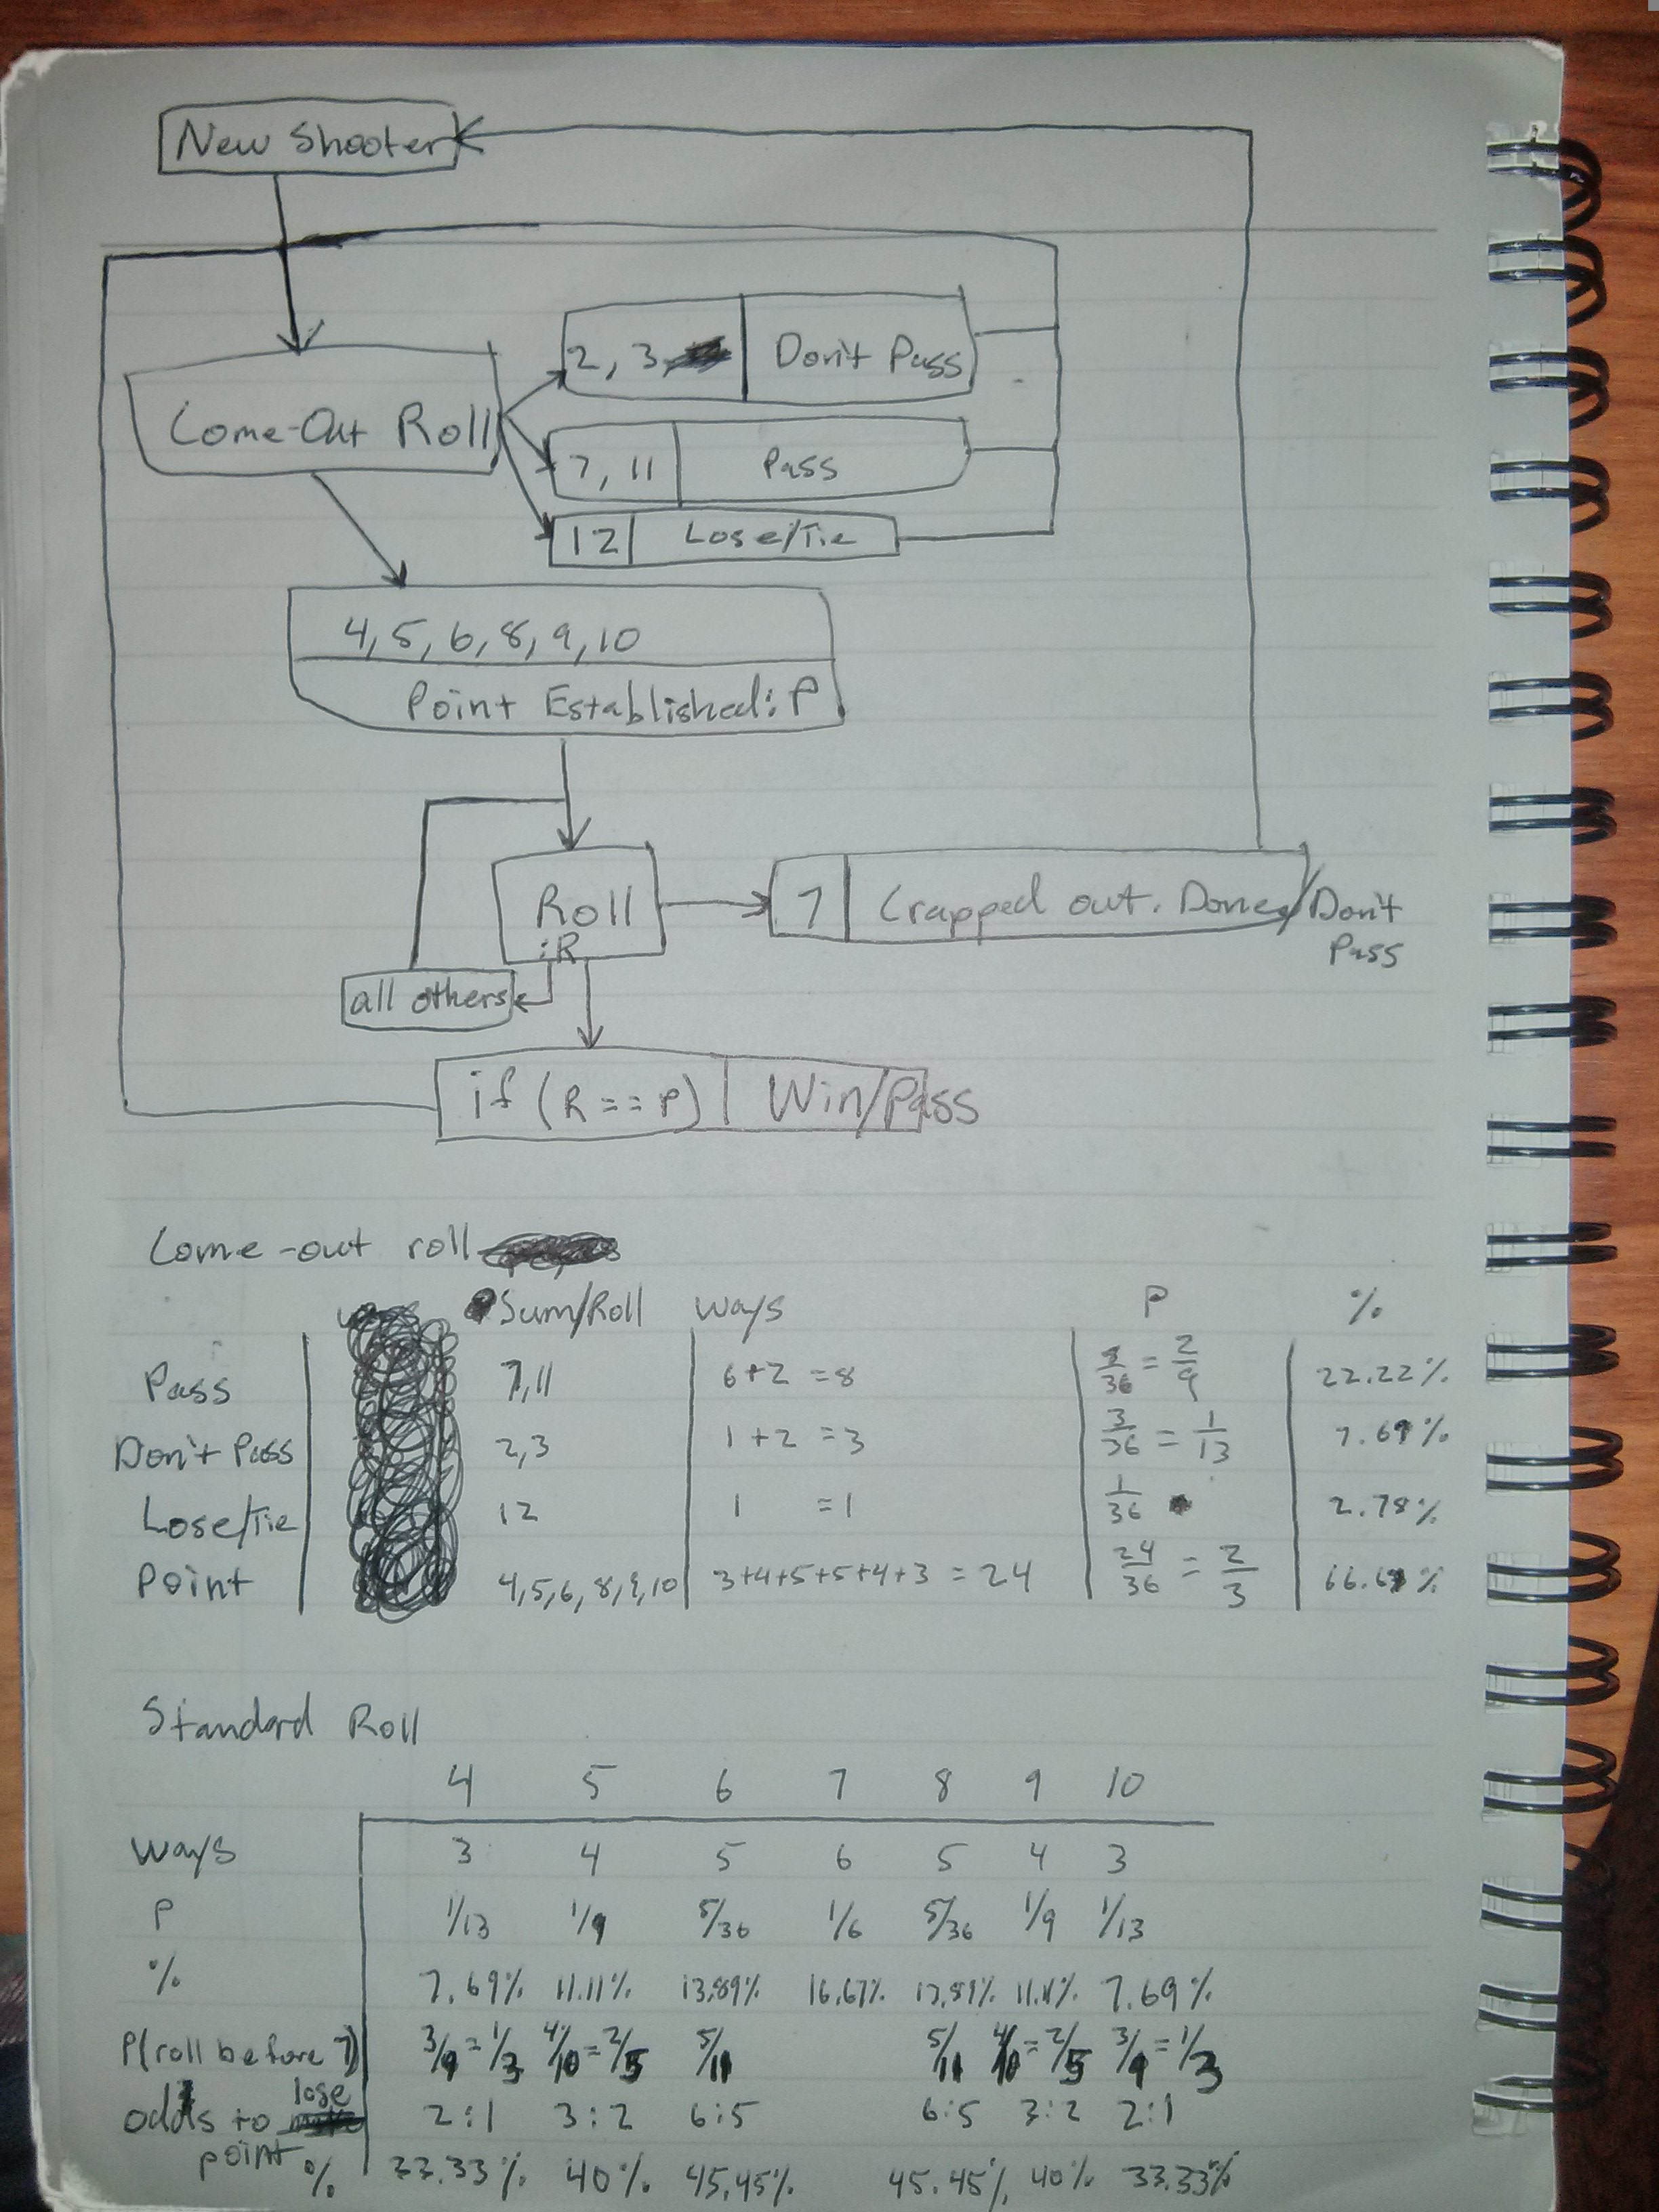 New Shooter
2, 3 Don't Pass
Come-Out Roll
7, 11 Pass
12 Lose/Tie
4, 5, 6, 8, 9, 10
Point Established: P
Roll
:R
7 Crapped out. Done/Don't
Pass
all others
if (R == P) Win/Pass
Come-out roll
Sum/Roll Ways P %
Pass 7,11 6+2 =8 8/36 = 2/9 22.22%
Don't Pass 2,3 1+2 =3 3/36 = 1/13 7.69%
Lose/Tie 12 1 =1 1/36 2.78%
Point 4,5,6,8,9,10 3+4+5+5+4+3 = 24 24/36 = 2/3 66.67%
Standard Roll
4 5 6 7 8 9 10
Ways 3 4 5 6 5 4 3
P 1/13 1/9 5/36 1/6 5/36 1/9 1/13
% 7.69% 11.11% 13.89% 16.67% 13.89% 11.11% 7.69%
P(roll before 7) 3/9=1/3 4/10=2/5 5/11 5/11 4/10=2/5 3/9=1/3
odds to lose 2:1 3:2 6:5 6:5 3:2 2:1
point % 33.33% 40% 45.45% 45.45% 40% 33.33%